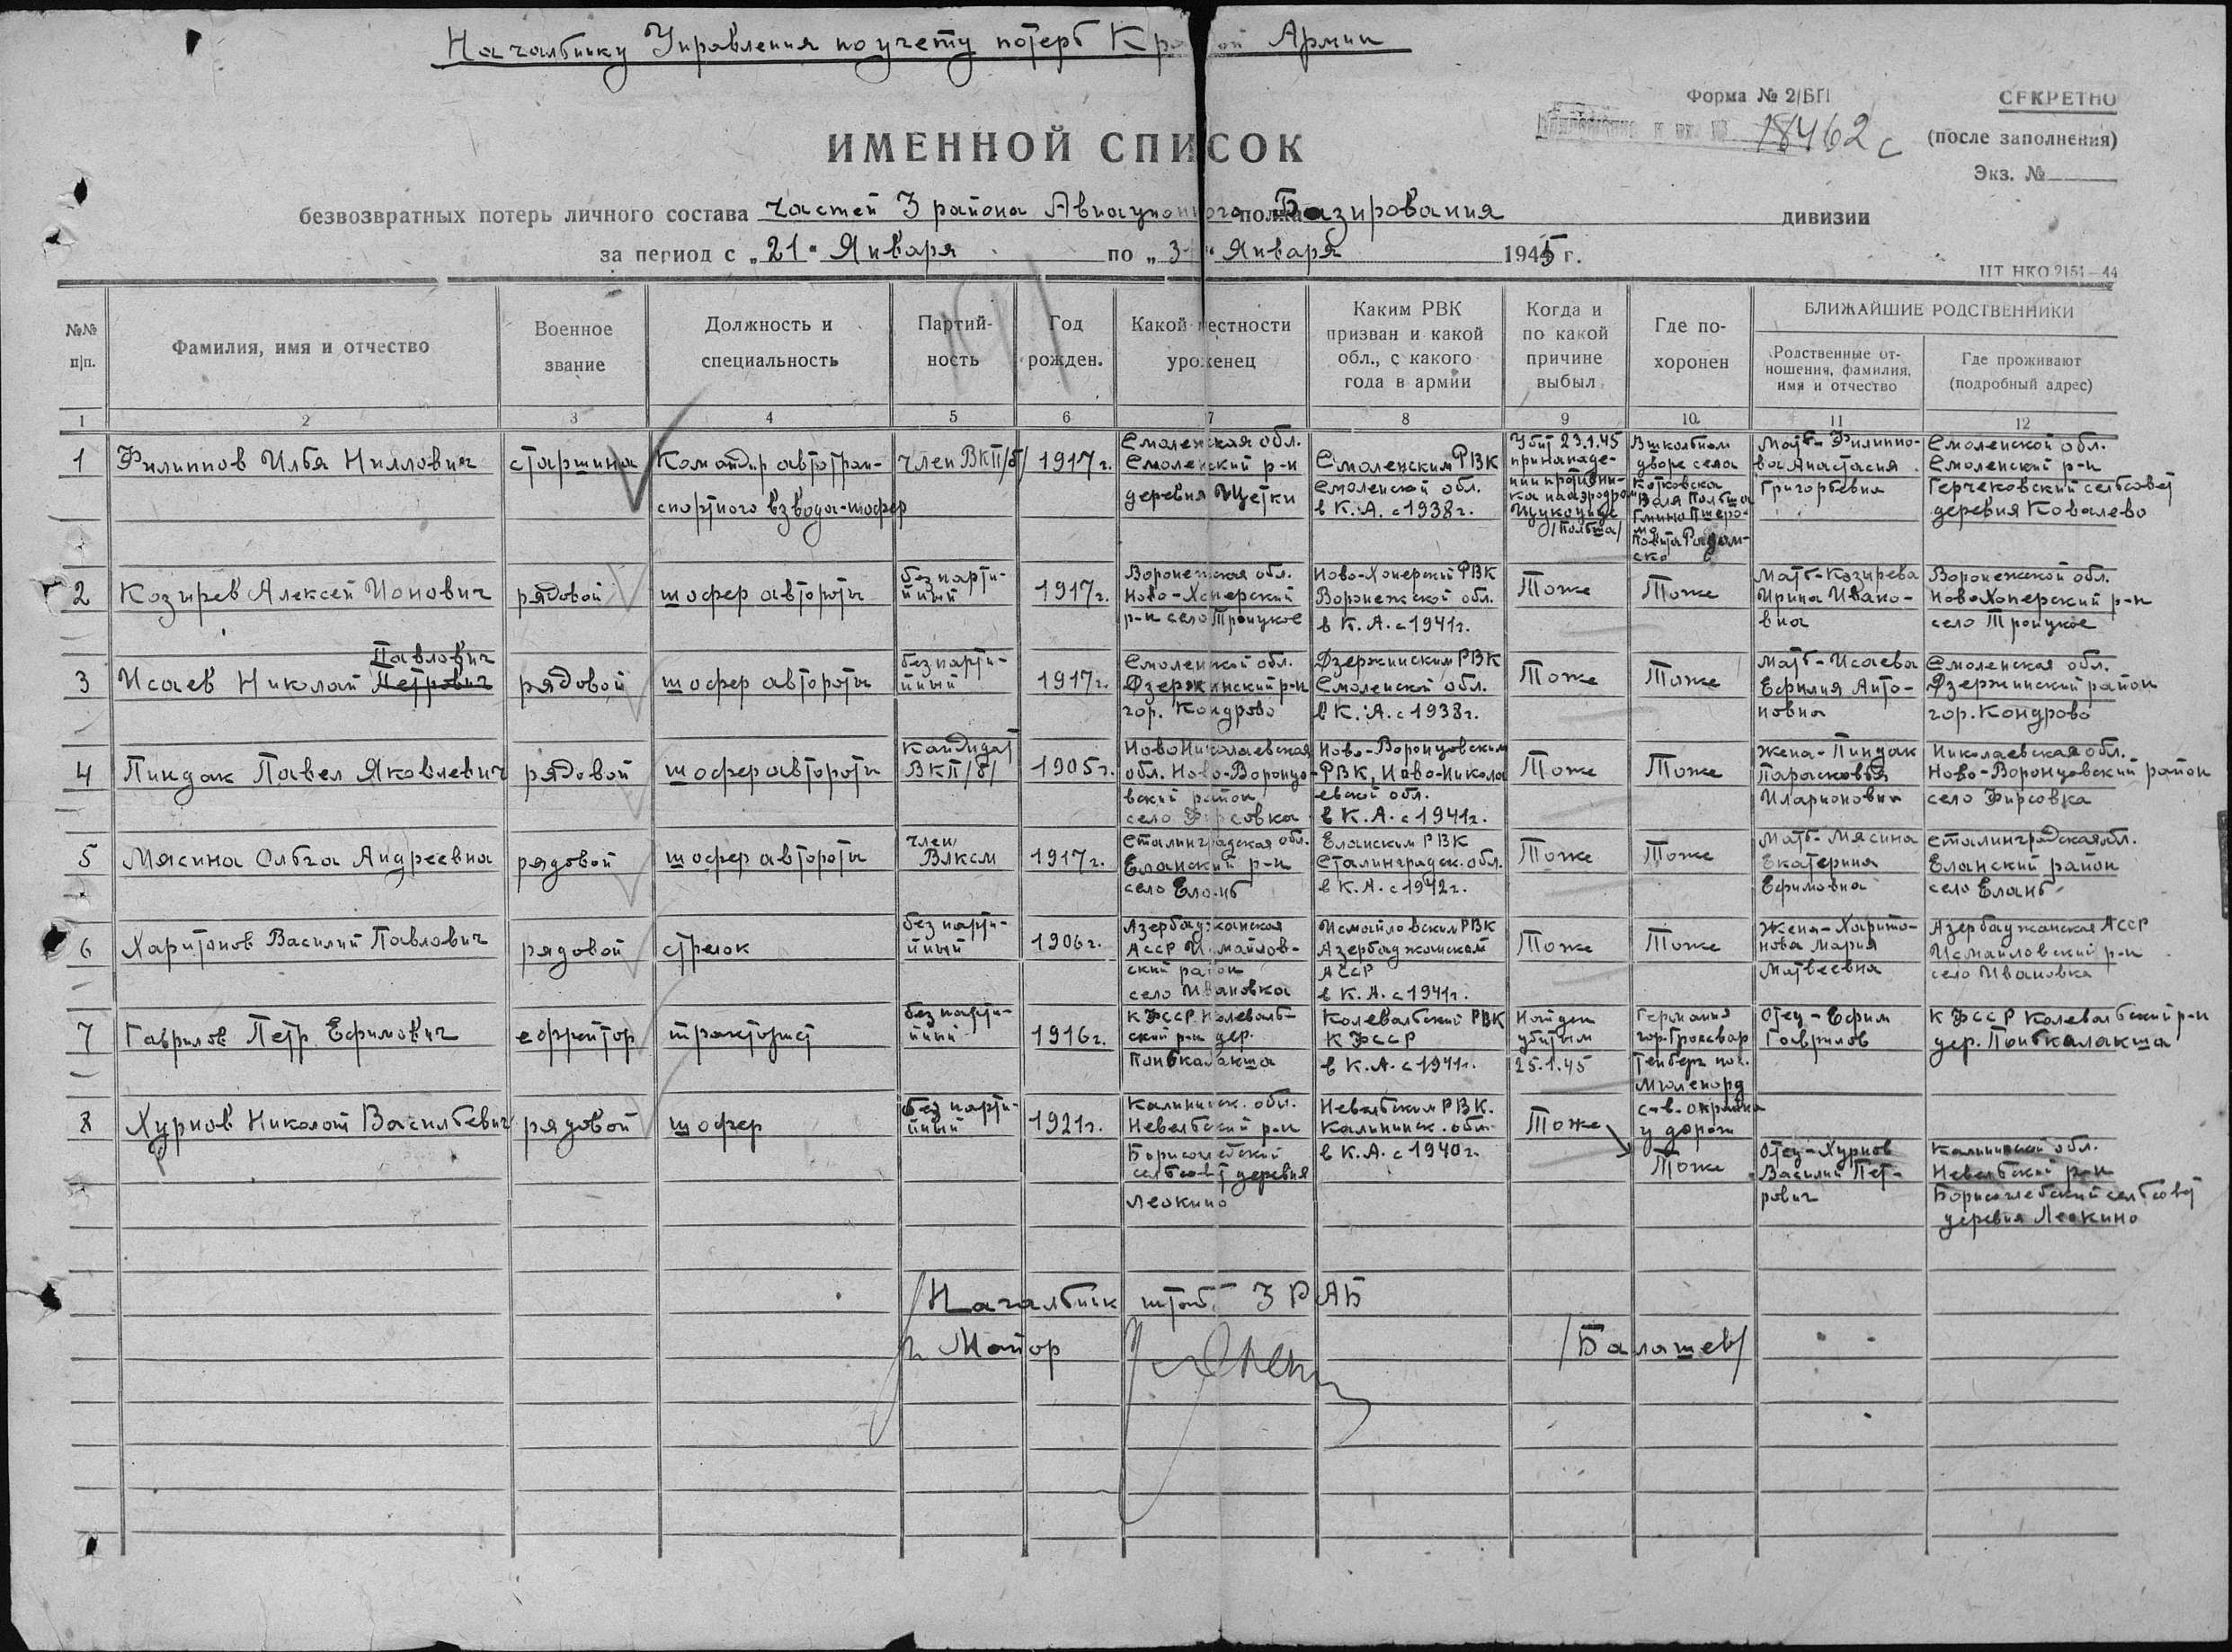 Начальнику Управления по учету потерь Армии
Форма № 2/БП
СЕКРЕТНО
18462с
(после заполнения)
Экз. №
ИМЕННОЙ СПИСОК
безвозвратных потерь личного состава частей 3 района Авиационного полка Базирования дивизии
за период с „21" Января по „3 " Января 1945 г.
ЦТ НКО 2151—44
№№ п/п.
Фамилия, имя и отчество
Военное звание
Должность и специальность
Партий-
ность
Год рожден.
Какой местности уроженец
Каким РВК
призван и какой
обл., с какого
года в армии
Когда и
по какой
причине
выбыл
Где по-
хоронен
БЛИЖАЙШИЕ РОДСТВЕННИКИ
Родственные от-
ношения, фамилия,
имя и отчество
Где проживают
(подробный адрес)
1 2 3 4 5 6 7 8 9 10 11 12
1
Филиппов Илья Нилович
старшина
Командир автотран-
спортного взвода-шофер
член ВКП/б/
1917 г.
Смоленская обл.
Смоленский р-н
деревня Щетки
Смоленским РВК
Смоленской обл.
в К.А. с 1938 г.
Убит 23.1.45
при нападе-
нии против-
ника на аэродром
/Польша/
В школьном
дворе села
Котковска
Воля Польша
Мать-Филиппо-
ва Анастасия
Григорьевна
Смоленской обл.
Смоленский р-н
Герчековский сельсовет
деревня Ковалево
2
Козырев Алексей Ионович
рядовой
шофер автороты
без парти-
йный
1917 г.
Воронежская обл.
Ново-Хоперский
р-н село Троицкое
Ново-Хоперский РВК
Воронежской обл.
в К.А. с 1941 г.
Тоже
Тоже
Мать-Козырева
Ирина Ивано-
вна
Воронежской обл.
Ново Хоперский р-н
село Троицкое
3
Павлович
Исаев Николай Петрович
рядовой
шофер автороты
без парти-
йный
1917 г.
Смоленской обл.
Дзержинский р-н
гор. Кондрово
Дзержинским РВК
Смоленской обл.
в К.А. с 1938 г.
Тоже
Тоже
Мать-Исаева
Ефилия Анто-
новна
Смоленская обл.
Дзержинский район
гор. Кондрово
4
Пиндак Павел Яковлевич
рядовой
шофер автороты
кандидат
ВКП/б/
1905 г.
Ново Николаевская
обл. Ново-Воронцо-
вский район
село Фирсовка
Ново-Воронцовским
РВК, Ново-Никола
евской обл.
в К.А. с 1941 г.
Тоже
Тоже
Жена-Пиндак
Парасковья
Иларионовна
Николаевская обл.
Ново-Воронцовский район
село Фирсовка
5
Мясина Ольга Андреевна
рядовой
шофер автороты
член
ВЛКСМ
1917 г.
Сталинградская обл.
Еланский р-н
село Елань
Еланским РВК
Сталинградск. обл.
в К.А. с 1942 г.
Тоже
Тоже
Мать-Мясина
Екатерина
Ефимовна
Сталинградская обл.
Еланский район
село Елань
6
Харитонов Василий Павлович
рядовой
стрелок
без парти-
йный
1906 г.
Азербаджанская
АССР Исмайлов-
ский район
село Ивановка
Исмайловским РВК
Азербаджанской
АССР
в К.А. с 1941 г.
Тоже
Тоже
Жена-Харито-
нова Мария
Матвеевна
Азербаджанская АССР
Исмайловский р-н
село Ивановка
7
Гаврилов Петр Ефимович
ефрейтор
тракторист
без парти-
йный
1916 г.
К ФССР Колеваль-
ский р-н дер.
Понькалакша
Колевальский РВК
К ФССР
в К.А. с 1941 г.
Найден
убитым
25.1.45
Германия
гор. Гросвар
тенберг пос.
Мюленорд
с-в. окраина
у дороги
Отец-Ефим
Гаврилов
К ФССР Колевальский р-н
дер. Понькалакша
8
Хурнов Николай Васильевич
рядовой
шофер
без парти-
йный
1921 г.
Калининск. обл.
Невельский р-н
Борисоглебский
сельсовет деревня
Леокино
Невельским РВК.
Калининск. обл.
в К.А. с 1940 г.
Тоже
Тоже
Отец-Хурнов
Василий Пет-
рович
Калининской обл.
Невельский р-н
Борисоглебский сельсовет
деревня Леокино
Начальник штаба 3 РАБ
Майор /Балашев/